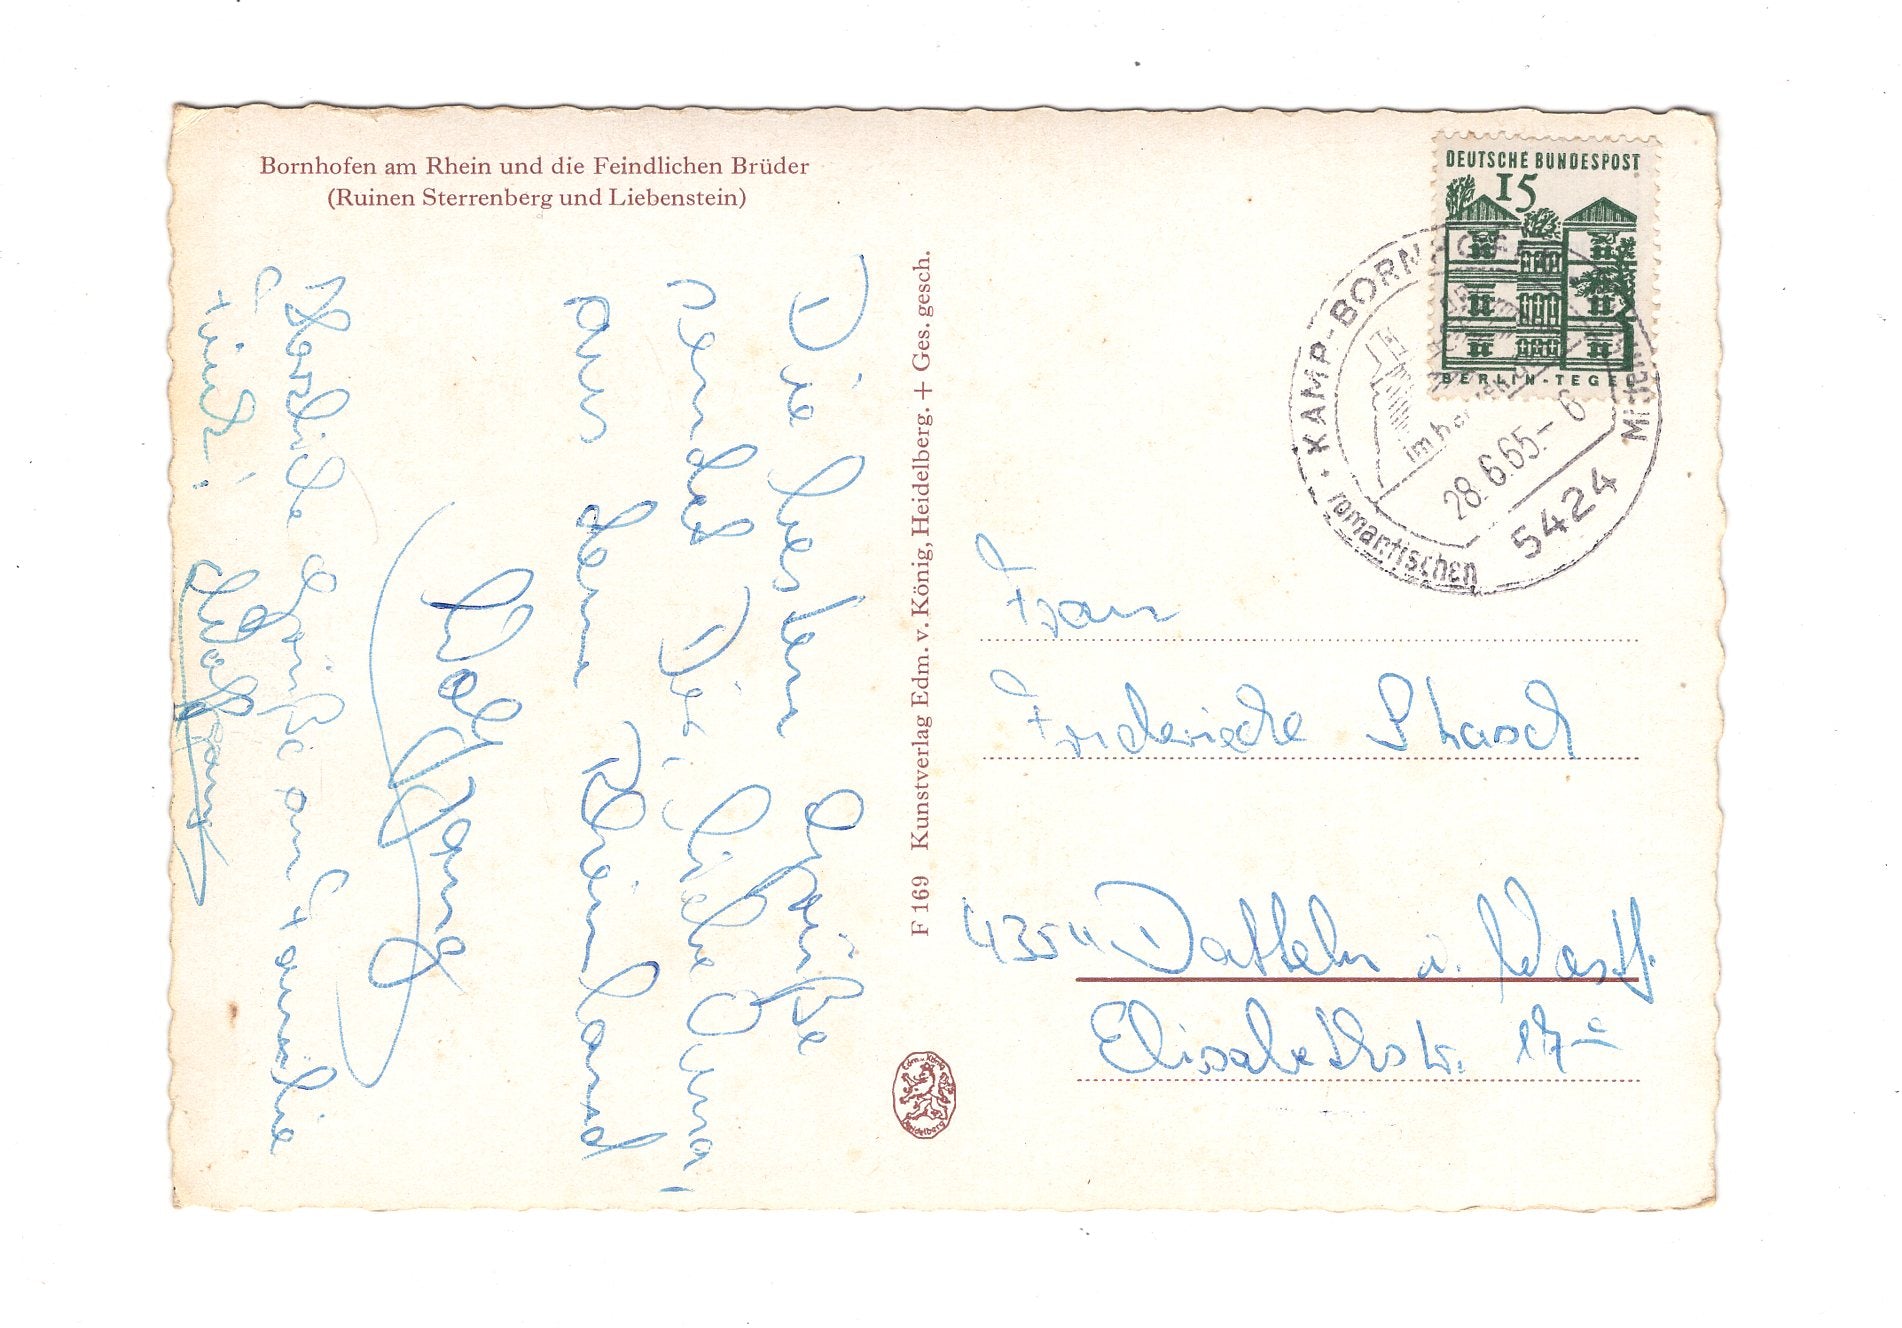 Bornhofen am Rhein und die Feindlichen Brüder
(Ruinen Sterrenberg und Liebenstein)
Die besten Grüße
sendet Dir, liebe Oma,
aus dem Rheinland
Wolfgang
Herzliche Grüße an Familie
Wolfgang
F 169 Kunstverlag Edm. v. König, Heidelberg. + Ges. gesch.
Edm. v. König
Heidelberg
DEUTSCHE BUNDESPOST
15
BERLIN-TEGEL
KAMP-BORNHOFEN
im
romantischen
28.6.65.-6
5424
Frau
Friederike
4354 Datteln i. Westf.
Elisabethstr. 17